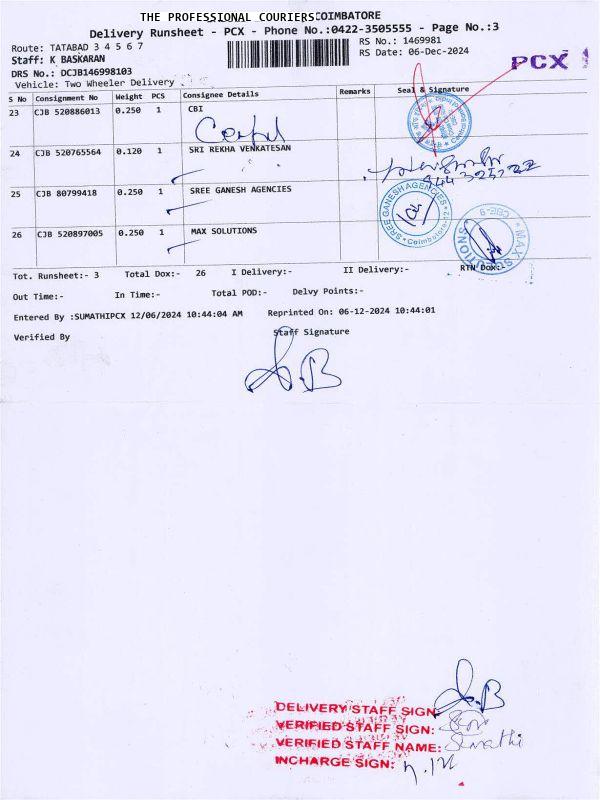 THE PROFESSIONAL COURIERS:COIMBATORE
Delivery Runsheet - PCX - Phone No.:0422-3505555 - Page No.:3
Route: TATABAD 3 4 5 6 7
RS No.: 1469981
Staff: K BASKARAN
RS Date: 06-Dec-2024
PCX
DRS No.: DCJB146998103
Vehicle: Two Wheeler Delivery
S No Consignment No Weight PCS Consignee Details Remarks Seal & Signature
23 CJB 520886013 0.250 1 CBI
24 CJB 520765564 0.120 1 SRI REKHA VENKATESAN
25 CJB 80799418 0.250 1 SREE GANESH AGENCIES
SREE GANESH AGENCIES
Coimbatore-12
26 CJB 520897005 0.250 1 MAX SOLUTIONS
MAX SOLUTIONS
Tot. Runsheet:- 3 Total Dox:- 26 I Delivery:- II Delivery:- RTN Dox:-
Out Time:- In Time:- Total POD:- Delvy Points:-
Entered By :SUMATHIPCX 12/06/2024 10:44:04 AM Reprinted On: 06-12-2024 10:44:01
Verified By Staff Signature
DELIVERY STAFF SIGN:
VERIFIED STAFF SIGN:
VERIFIED STAFF NAME: Sumathi
INCHARGE SIGN: